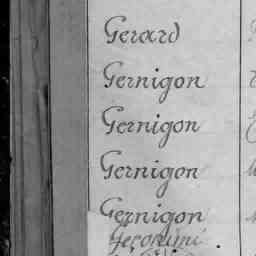 Gerard
Gernigon
Gernigon
Gernigon
Gernigon
Geronimi